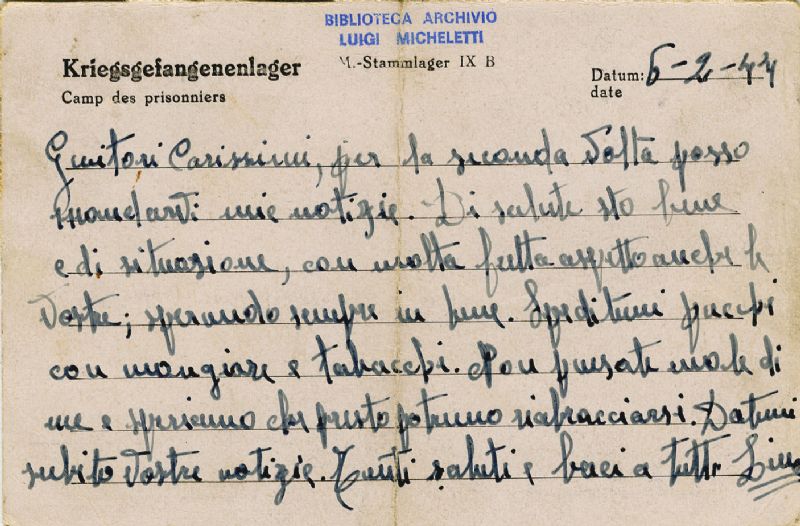 BIBLIOTECA ARCHIVIO
LUIGI MICHELETTI
Kriegsgefangenenlager
M.-Stammlager IX B
Camp des prisonniers
Datum: 6-2-44
date
Genitori Carissimi, per la seconda volta posso
mandarvi mie notizie. Di salute sto bene
e di situazione, con molta fretta aspetto anche le
Vostre; sperando sempre in bene. Speditemi pacchi
con mangiare e tabacchi. Non pensate male di
me e speriamo che presto potremo riabracciarsi. Datemi
subito Vostre notizie. Tanti saluti e baci a tutti. Lino